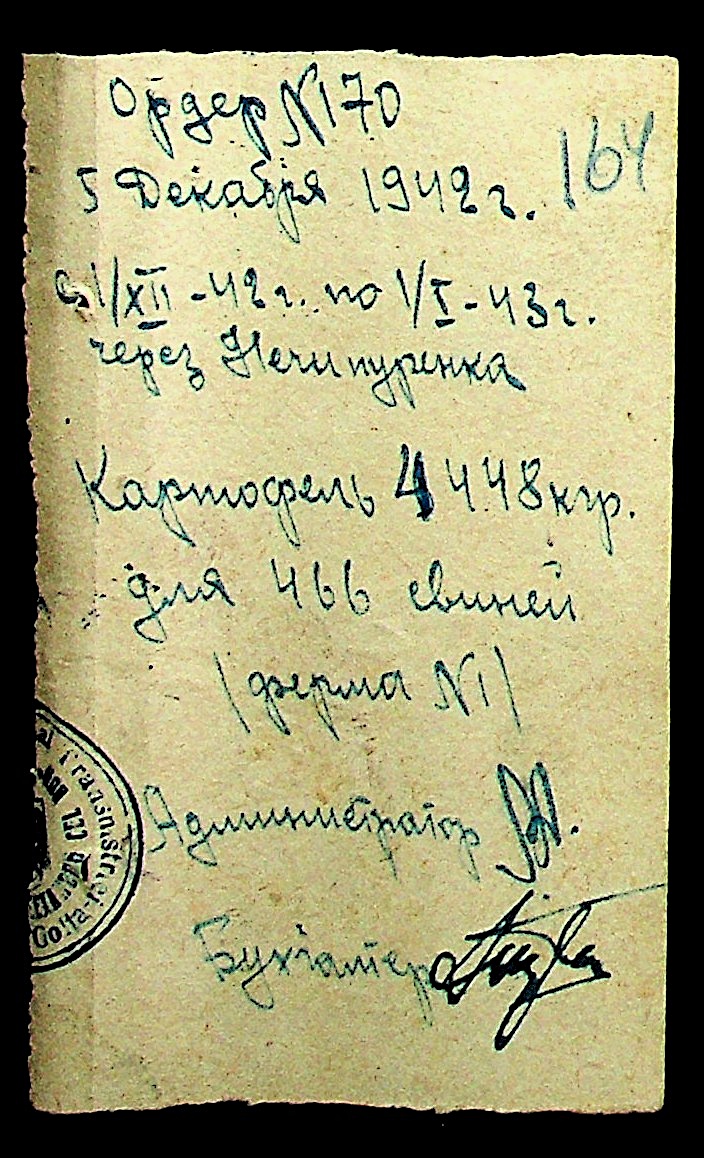 Ордер N170
164
5 Декабря 1942 г.
С 1/XII - 42 г. по 1/I - 43 г.
через Нечипуренка
Картофель 4 448 кгр.
для 466 свиней
/ферма N1/
Администратор
Бухгалтер
Transnistriei
Golta